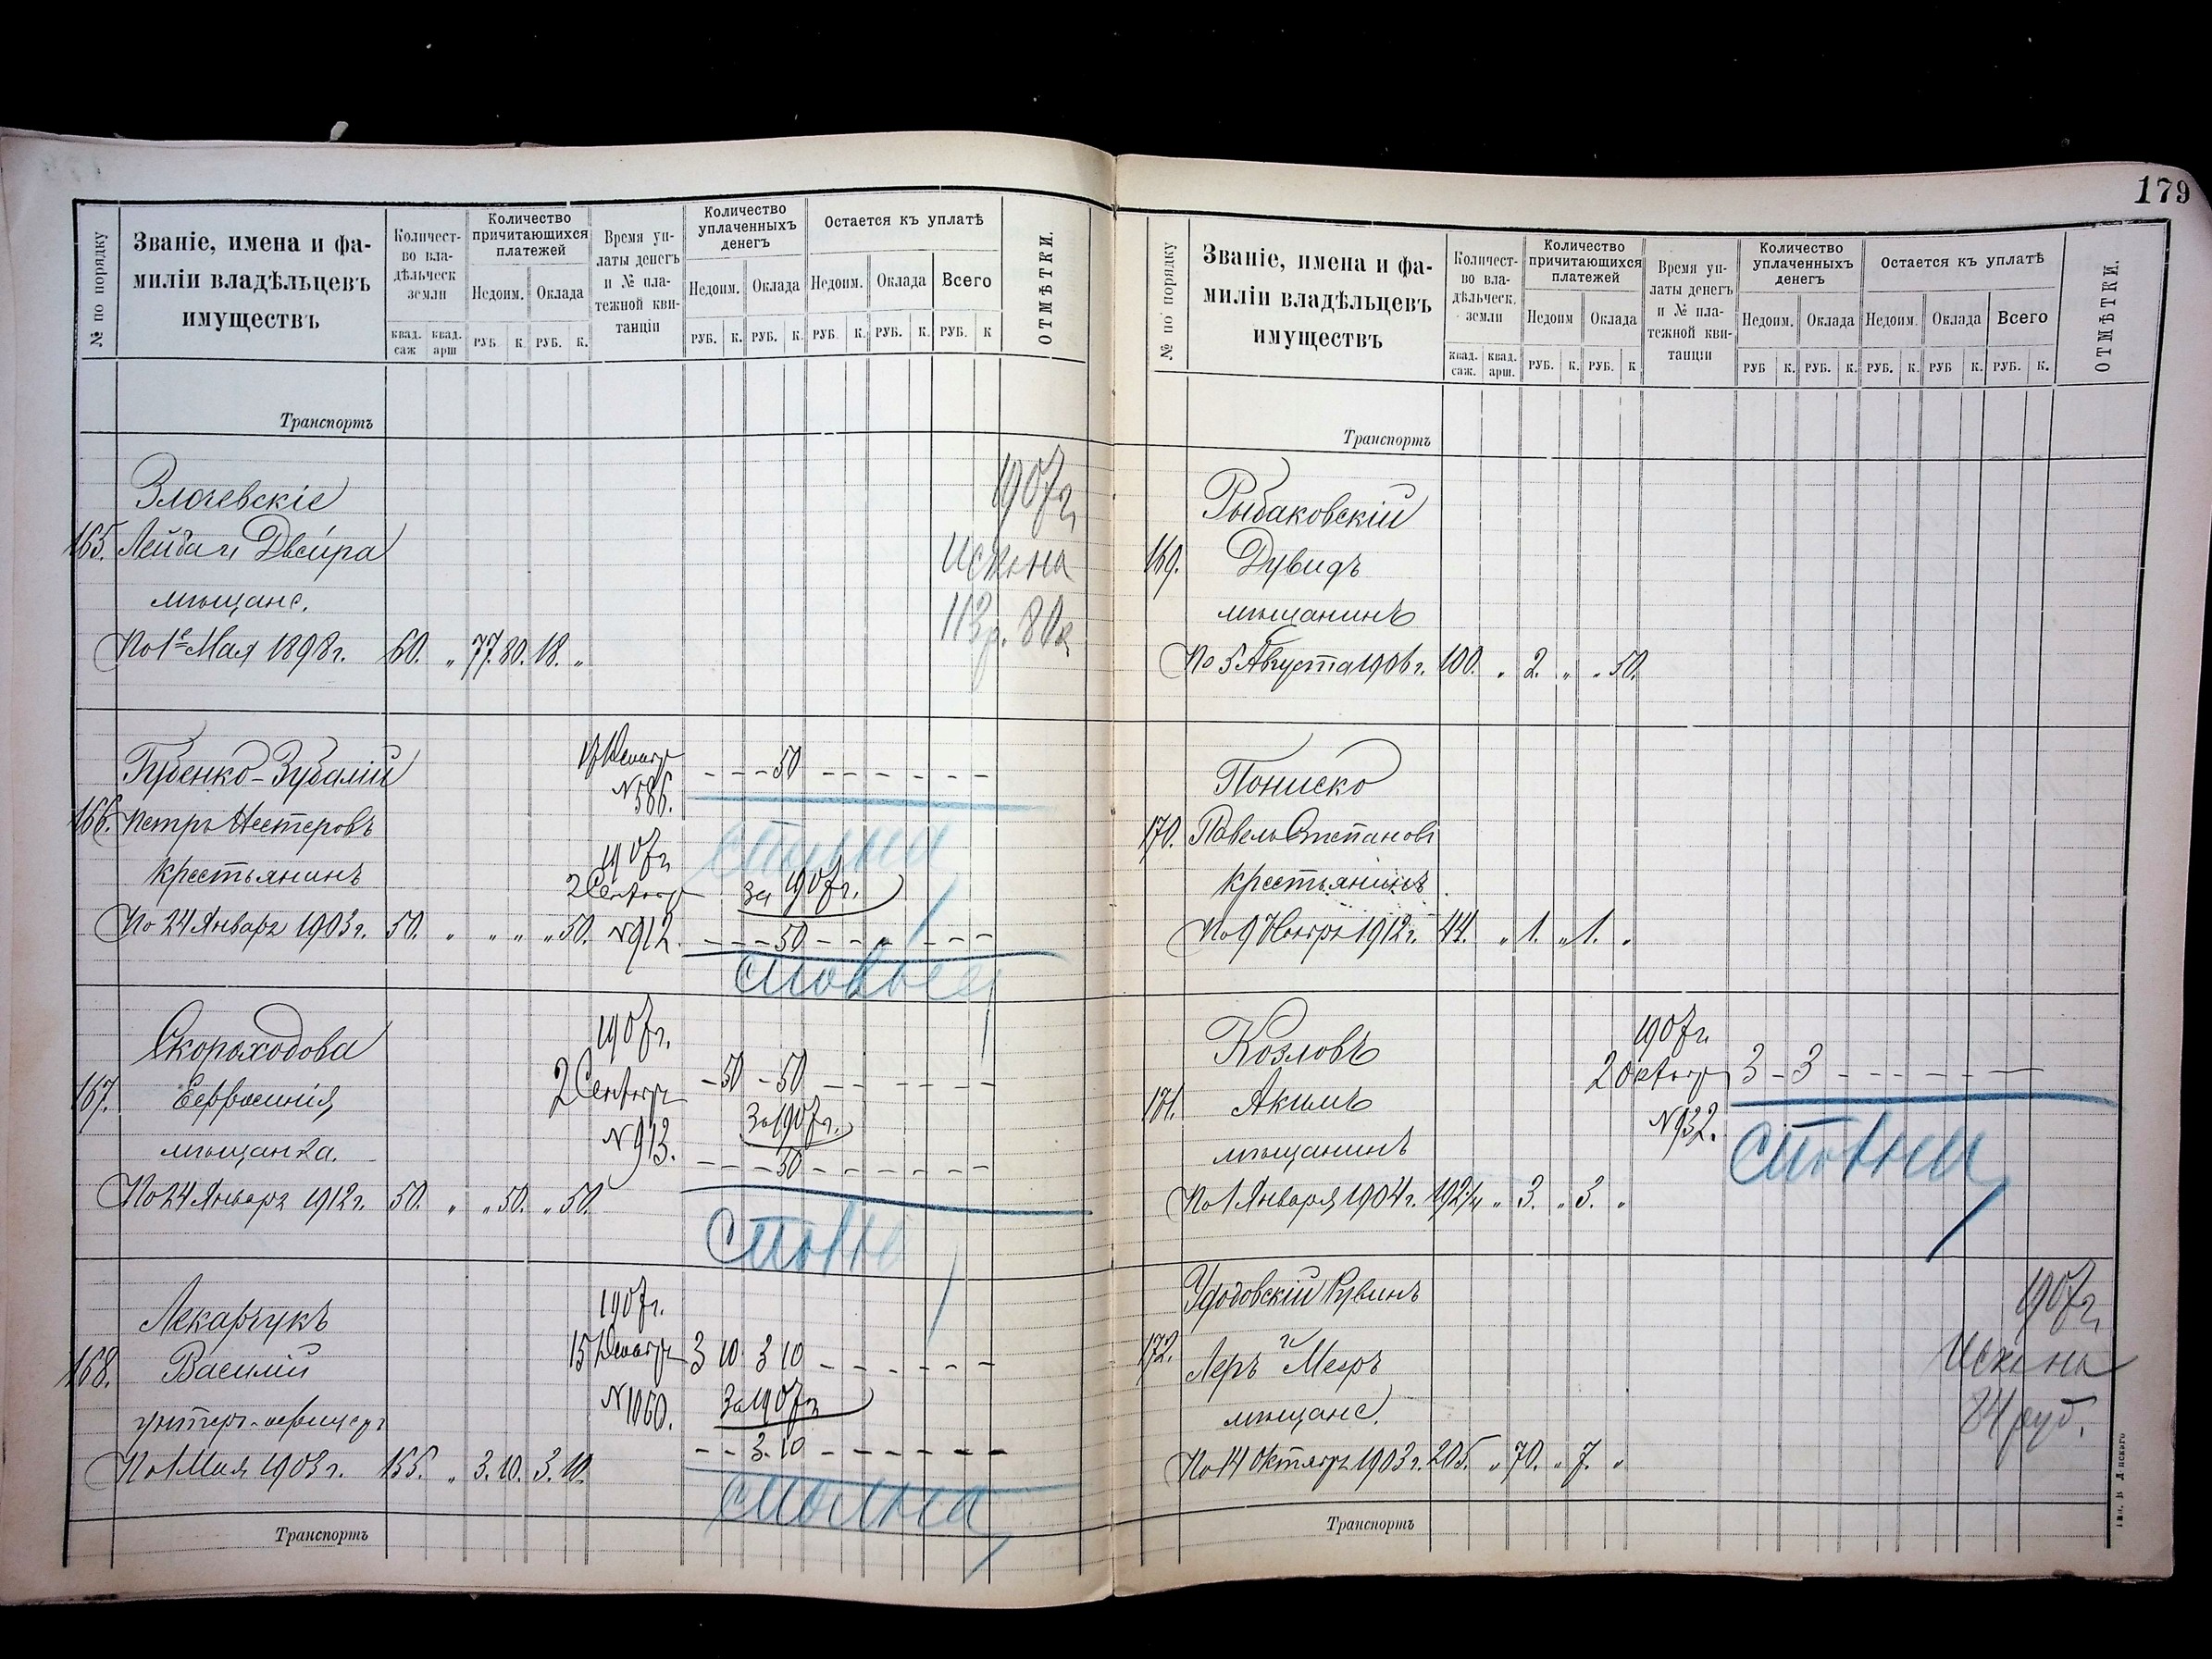 179
№ по порядку
Званіе, имена и фа-
миліи владѣльцевъ
имуществъ
Количест-
во вла-
дѣльческ
земли
квад. саж
квад. арш
Количество
причитающихся
платежей
Недоим. Оклада
РУБ К. РУБ. К.
Время уп-
латы денегъ
и № пла-
тежной кви-
танціи
Количество
уплаченныхъ
денегъ
Недоим. Оклада
РУБ. К. РУБ. К.
Остается къ уплатѣ
Недоим. Оклада Всего
РУБ. К. РУБ. К. РУБ. К
ОТМѢТКИ.
Транспортъ
Злочевскіе
165. Лейба и Двейра
мѣщане.
По 1е Мая 1898 г. 60. „ 77. 80. 18. „
1907 г.
113 р. 80 к
Губенко-Зубалій
166. Петръ Нестеровъ
крестьянинъ
По 24 Января 1903 г. 50. „ „ „ „ 50.
№ 586.
- - - 50 - - - - - -
1907 г.
2 Сентяр
№ 912.
за 1907 г.
- - - 50 - - - - - -
Скороходова
167. Евфросинія
мѣщанка.
По 24 Января 1912 г. 50. „ „ 50. „ 50.
1907 г.
2 Сентяр
№ 913.
- 50 - 50 - - - - - -
За 1907 г.
- - - 50 - - - - - -
Лекарчукъ
168. Василій
унтеръ-офицеръ
По 1 Мая 1903 г. 155. „ 3. 10. 3. 10.
1907 г.
15
№ 1060.
3 10 3 10 - - - - - -
За 1907 г
- - 3. 10 - - - - - -
Транспортъ
№ по порядку
Званіе, имена и фа-
миліи владѣльцевъ
имуществъ
Количест-
во вла-
дѣльческ.
земли
квад. саж.
квад. арш.
Количество
причитающихся
платежей
Недоим Оклада
РУБ. К. РУБ. К
Время уп-
латы денегъ
и № пла-
тежной кви-
танціи
Количество
уплаченныхъ
денегъ
Недоим. Оклада
РУБ К. РУБ. К.
Остается къ уплатѣ
Недоим. Оклада Всего
РУБ. К. РУБ К. РУБ. К.
ОТМѢТКИ.
Транспортъ
Рыбаковскій
169. Дувидъ
мѣщанинъ
По 5 Августа 1906 г. 100. „ 2. „ „ 50.
170. Павелъ Степановъ
крестьянинъ
По 9 Ноября 1912 г. 44. „ 1. „ 1. „
Козловъ
171. Акимъ
мѣщанинъ
По 1 Января 1904 г. 192 1/4 „ 3. „ 3. „
1907 г.
2 Октяр
№ 932.
3 - 3 - - - - - -
Удовскій Рувинъ
и
172. Леръ Мееръ
мѣщане.
По 14 Октября 1903 г. 205. „ 70. „ 7. „
1907 г.
84 руб.
Транспортъ